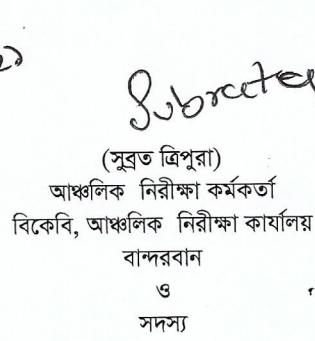 ২)
Subrata
(সুব্রত ত্রিপুরা)
আঞ্চলিক নিরীক্ষা কর্মকর্তা
বিকেবি, আঞ্চলিক নিরীক্ষা কার্যালয়
বান্দরবান
ও
সদস্য